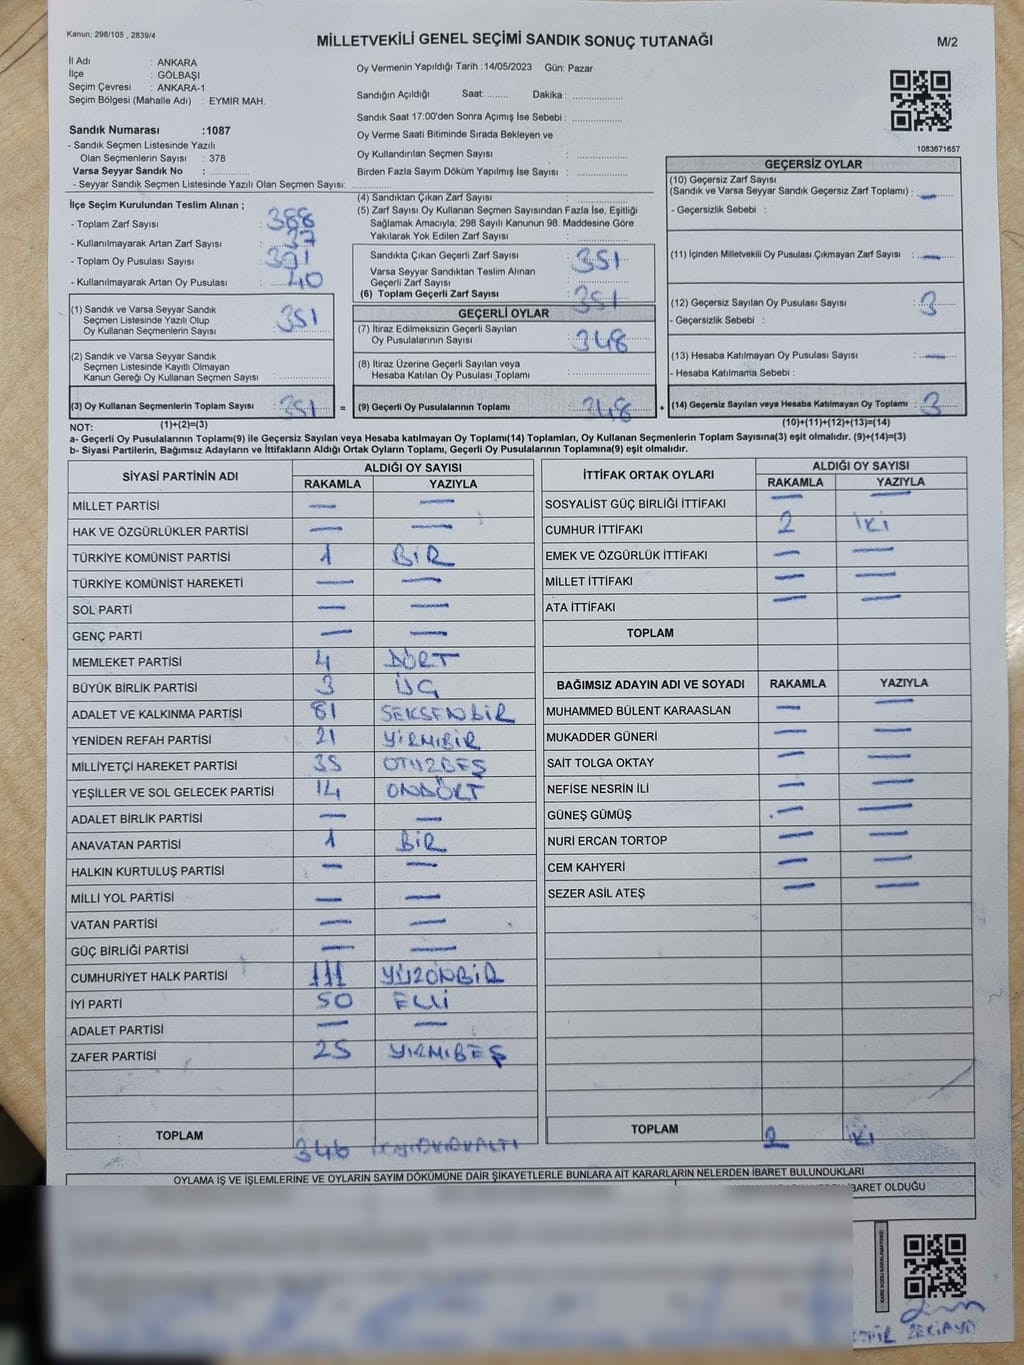 Kanun; 298/105 , 2839/4
MİLLETVEKİLİ GENEL SEÇİMİ SANDIK SONUÇ TUTANAĞI
M/2
İl Adı : ANKARA
İlçe : GÖLBAŞI
Seçim Çevresi : ANKARA-1
Seçim Bölgesi (Mahalle Adı) : EYMİR MAH.
Sandık Numarası :1087
- Sandık Seçmen Listesinde Yazılı
Olan Seçmenlerin Sayısı : 378
Varsa Seyyar Sandık No : ..............
- Seyyar Sandık Seçmen Listesinde Yazılı Olan Seçmen Sayısı: ..............
Oy Vermenin Yapıldığı Tarih :14/05/2023 Gün: Pazar
Sandığın Açıldığı Saat: ........ Dakika : ..............
Sandık Saat 17:00'den Sonra Açımış İse Sebebi : ..............
Oy Verme Saati Bitiminde Sırada Bekleyen ve
Oy Kullandırılan Seçmen Sayısı : ..............
Birden Fazla Sayım Döküm Yapılmış İse Sayısı : ..............
1083671657
İlçe Seçim Kurulundan Teslim Alınan ;
- Toplam Zarf Sayısı : 388
- Kullanılmayarak Artan Zarf Sayısı : 37
- Toplam Oy Pusulası Sayısı : 391
- Kullanılmayarak Artan Oy Pusulası : 40
(1) Sandık ve Varsa Seyyar Sandık
Seçmen Listesinde Yazılı Olup
Oy Kullanan Seçmenlerin Sayısı : 351
(2) Sandık ve Varsa Seyyar Sandık
Seçmen Listesinde Kayıtlı Olmayan
Kanun Gereği Oy Kullanan Seçmen Sayısı : ..............
(3) Oy Kullanan Seçmenlerin Toplam Sayısı : 351 =
(4) Sandıktan Çıkan Zarf Sayısı : ..............
(5) Zarf Sayısı Oy Kullanan Seçmen Sayısından Fazla İse, Eşitliği
Sağlamak Amacıyla; 298 Sayılı Kanunun 98. Maddesine Göre
Yakılarak Yok Edilen Zarf Sayısı : ..............
Sandıkta Çıkan Geçerli Zarf Sayısı : 351
Varsa Seyyar Sandıktan Teslim Alınan
Geçerli Zarf Sayısı :
(6) Toplam Geçerli Zarf Sayısı : 351
GEÇERLİ OYLAR
(7) İtiraz Edilmeksizin Geçerli Sayılan
Oy Pusulalarının Sayısı : 348
(8) İtiraz Üzerine Geçerli Sayılan veya
Hesaba Katılan Oy Pusulası Toplamı : ..............
(9) Geçerli Oy Pusulalarının Toplamı : 348 +
GEÇERSİZ OYLAR
(10) Geçersiz Zarf Sayısı
(Sandık ve Varsa Seyyar Sandık Geçersiz Zarf Toplamı) : —
- Geçersizlik Sebebi :
(11) İçinden Milletvekili Oy Pusulası Çıkmayan Zarf Sayısı : —
(12) Geçersiz Sayılan Oy Pusulası Sayısı : 3
- Geçersizlik Sebebi :
(13) Hesaba Katılmayan Oy Pusulası Sayısı : —
- Hesaba Katılmama Sebebi :
(14) Geçersiz Sayılan veya Hesaba Katılmayan Oy Toplamı : 3
NOT: (1)+(2)=(3) (10)+(11)+(12)+(13)=(14)
a- Geçerli Oy Pusulalarının Toplamı(9) ile Geçersiz Sayılan veya Hesaba katılmayan Oy Toplamı(14) Toplamları, Oy Kullanan Seçmenlerin Toplam Sayısına(3) eşit olmalıdır. (9)+(14)=(3)
b- Siyasi Partilerin, Bağımsız Adayların ve İttifakların Aldığı Ortak Oyların Toplamı, Geçerli Oy Pusulalarının Toplamına(9) eşit olmalıdır.
SİYASİ PARTİNİN ADI ALDIĞI OY SAYISI
RAKAMLA YAZIYLA
MİLLET PARTİSİ — —
HAK VE ÖZGÜRLÜKLER PARTİSİ — —
TÜRKİYE KOMÜNİST PARTİSİ 1 BİR
TÜRKİYE KOMÜNİST HAREKETİ — —
SOL PARTİ — —
GENÇ PARTİ — —
MEMLEKET PARTİSİ 4 DÖRT
BÜYÜK BİRLİK PARTİSİ 3 ÜÇ
ADALET VE KALKINMA PARTİSİ 81 SEKSENBİR
YENİDEN REFAH PARTİSİ 21 YİRMİBİR
MİLLİYETÇİ HAREKET PARTİSİ 35 OTUZBEŞ
YEŞİLLER VE SOL GELECEK PARTİSİ 14 ONDÖRT
ADALET BİRLİK PARTİSİ — —
ANAVATAN PARTİSİ 1 BİR
HALKIN KURTULUŞ PARTİSİ — —
MİLLİ YOL PARTİSİ — —
VATAN PARTİSİ — —
GÜÇ BİRLİĞİ PARTİSİ — —
CUMHURİYET HALK PARTİSİ 111 YÜZONBİR
İYİ PARTİ 50 ELLİ
ADALET PARTİSİ — —
ZAFER PARTİSİ 25 YİRMİBEŞ
TOPLAM 346
İTTİFAK ORTAK OYLARI ALDIĞI OY SAYISI
RAKAMLA YAZIYLA
SOSYALİST GÜÇ BİRLİĞİ İTTİFAKI — —
CUMHUR İTTİFAKI 2 İKİ
EMEK VE ÖZGÜRLÜK İTTİFAKI — —
MİLLET İTTİFAKI — —
ATA İTTİFAKI — —
TOPLAM
BAĞIMSIZ ADAYIN ADI VE SOYADI RAKAMLA YAZIYLA
MUHAMMED BÜLENT KARAASLAN — —
MUKADDER GÜNERİ — —
SAİT TOLGA OKTAY — —
NEFİSE NESRİN İLİ — —
GÜNEŞ GÜMÜŞ — —
NURİ ERCAN TORTOP — —
CEM KAHYERİ — —
SEZER ASİL ATEŞ — —
TOPLAM 2 İKİ
OYLAMA İŞ VE İŞLEMLERİNE VE OYLARIN SAYIM DÖKÜMÜNE DAİR ŞİKAYETLERLE BUNLARA AİT KARARLARIN NELERDEN İBARET BULUNDUKLARI
İBARET OLDUĞU